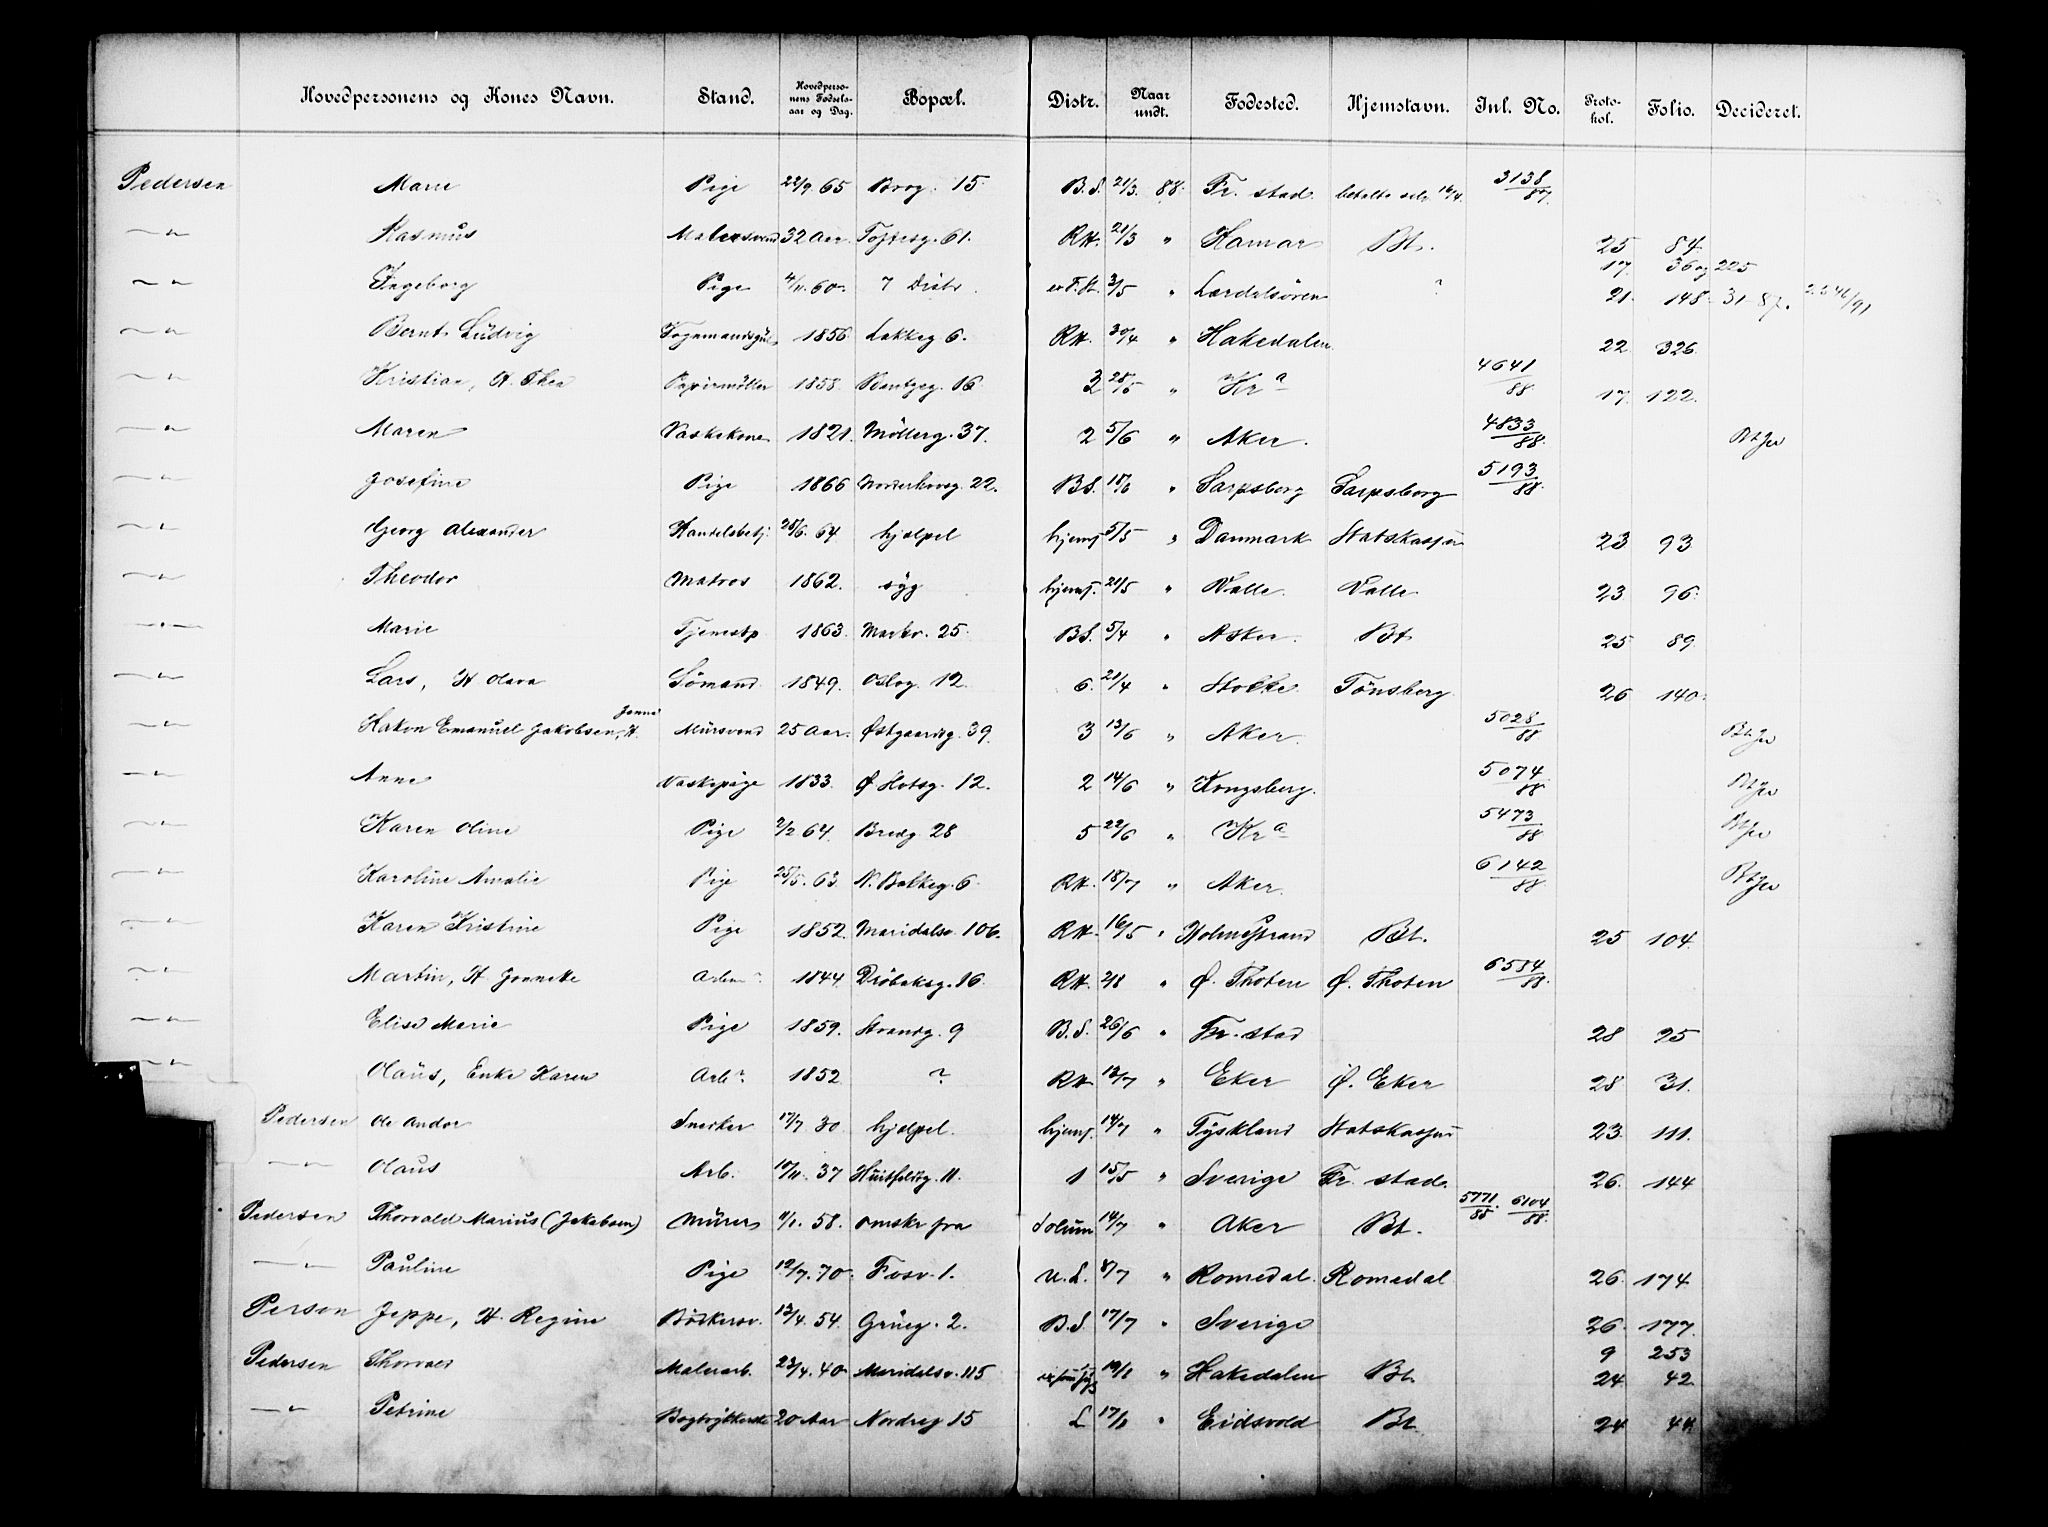 Hovedpersonens og Kones Navn. Stand. Hovedpersonens Fødselsaar og Dag. Bopæl. Distr. Naar undt. Fødested. Hjemstavn. Inl. No. Protokol. Folio. Decideret.
Pedersen Marie Pige 22/9 65 Brog. 15 B.S. 21/3 88 Fr. stad betalte selv 16/4. 3138/87
—"— Rasmus Malersvend 32 Aar Toftesg. 61. RH. 21/3 " Hamar Bt. 25 84
—"— Ingeborg Pige 4/11. 60 7 Distr. 3/5 " Lærdalsören ? 17. 36 og 225 21. 148 31-87. /91
—"— Bernt Ludvig 1856 Lakkeg 6. RH. 30/4 " Hakedalen 22 326
—"— Kristian, H. Thea Papirmöller 1858 16 3 28/5 " Kr a 4641/88 17. 122.
—"— Maren Vaskekone 1821. Möllerg. 37. 2 5/6 " Aker. 4833/88. Bt Jer
—"— Josefine Pige 1866 Norderhovsg. 22. BS. 18/6 " Sarpsborg Sarpsborg 5193/88.
—"— Georg Alexander Handelsbetj. 28/6. 64 hjælpel hjemf 5/5 " Danmark Statskassen 23 93
—"— Theodor Matros 1862. syg hjemf. 21/5 " Valle. Valle 23 96.
—"— Marie Tjenestp 1863. Markv. 25. BS. 5/4 " Asker. Bt 25 89.
—"— Lars, H Olava Sömand 1849. Oslog. 12. 6. 21/4 " Stokke Tönsberg 26 140
—"— Hakon Emanuel Jakobsen, H. Jenni Mursvend 25 Aar. Østgaardsg. 39. 3 13/6 " Aker. 5028/88 Bt Jer
—"— Anne Vaskepige 1833. Ø Slotsg. 12. 2 14/6 " Kongsberg. 5074/88 Bt Jer
—"— Karen Oline Pige 2/2 64. Bredg 28 5 22/6 " Kr a 5473/88 Bt Jer
—"— Karoline Amalie Pige 25/5. 63. N. Bakkeg. 6 RH. 18/7 " Aker. 6142/88 Bt Jer
—"— Karen Kristine Pige 1852. Maridalsv. 106. RH. 16/5 " Holmestrand Bt. 25 104.
—"— Martin, H Jonneke Arbm 1844. Dröbaksg. 16. RH. 2/8 " Ø. Thoten Ø. Thoten 6584/88.
—"— Elise Marie Pige 1859. Strandg. 9 B.S. 26/6 " Fr. stad 28 25
—"— Olaus, Enke Karen Arb. 1852 ? RH 12/7 " Eker Ø. Eker 28 31.
Pedersen Ole Andor Snekker 17/7 30 hjælpel. hjemf. 14/7 " Tyskland Statskassen 23. 111.
—"— Olaus Arb. 10/11. 37 Huitfeldsg. 11. 1 15/5 " Sverige Fr. stad. 26. 144
Pedersen Thorvald Marius (Jakobsen) Murer 11/1. 58. omskr fra Solum 14/7 " Aker Bt. 5771/88. 6104/88.
—"— Pauline Pige 12/7. 70. Fosv. 1. U. L. 8/7 " Romedal. Romedal 26. 174.
Person Jeppe, H. Regine Bödkersv. 13/4. 54. Grüeg. 2. B.S. 17/7 " Sverige 26. 177.
Pedersen Thorvald Malerarb. 23/4. 40 Maridalsv. 115 19/1 " Hakedalen Bt. 9 253 24. 42
—"— Petrine 20 Aar Nordreg 15 L 17/8 " Eidsvold Bt. 24 44